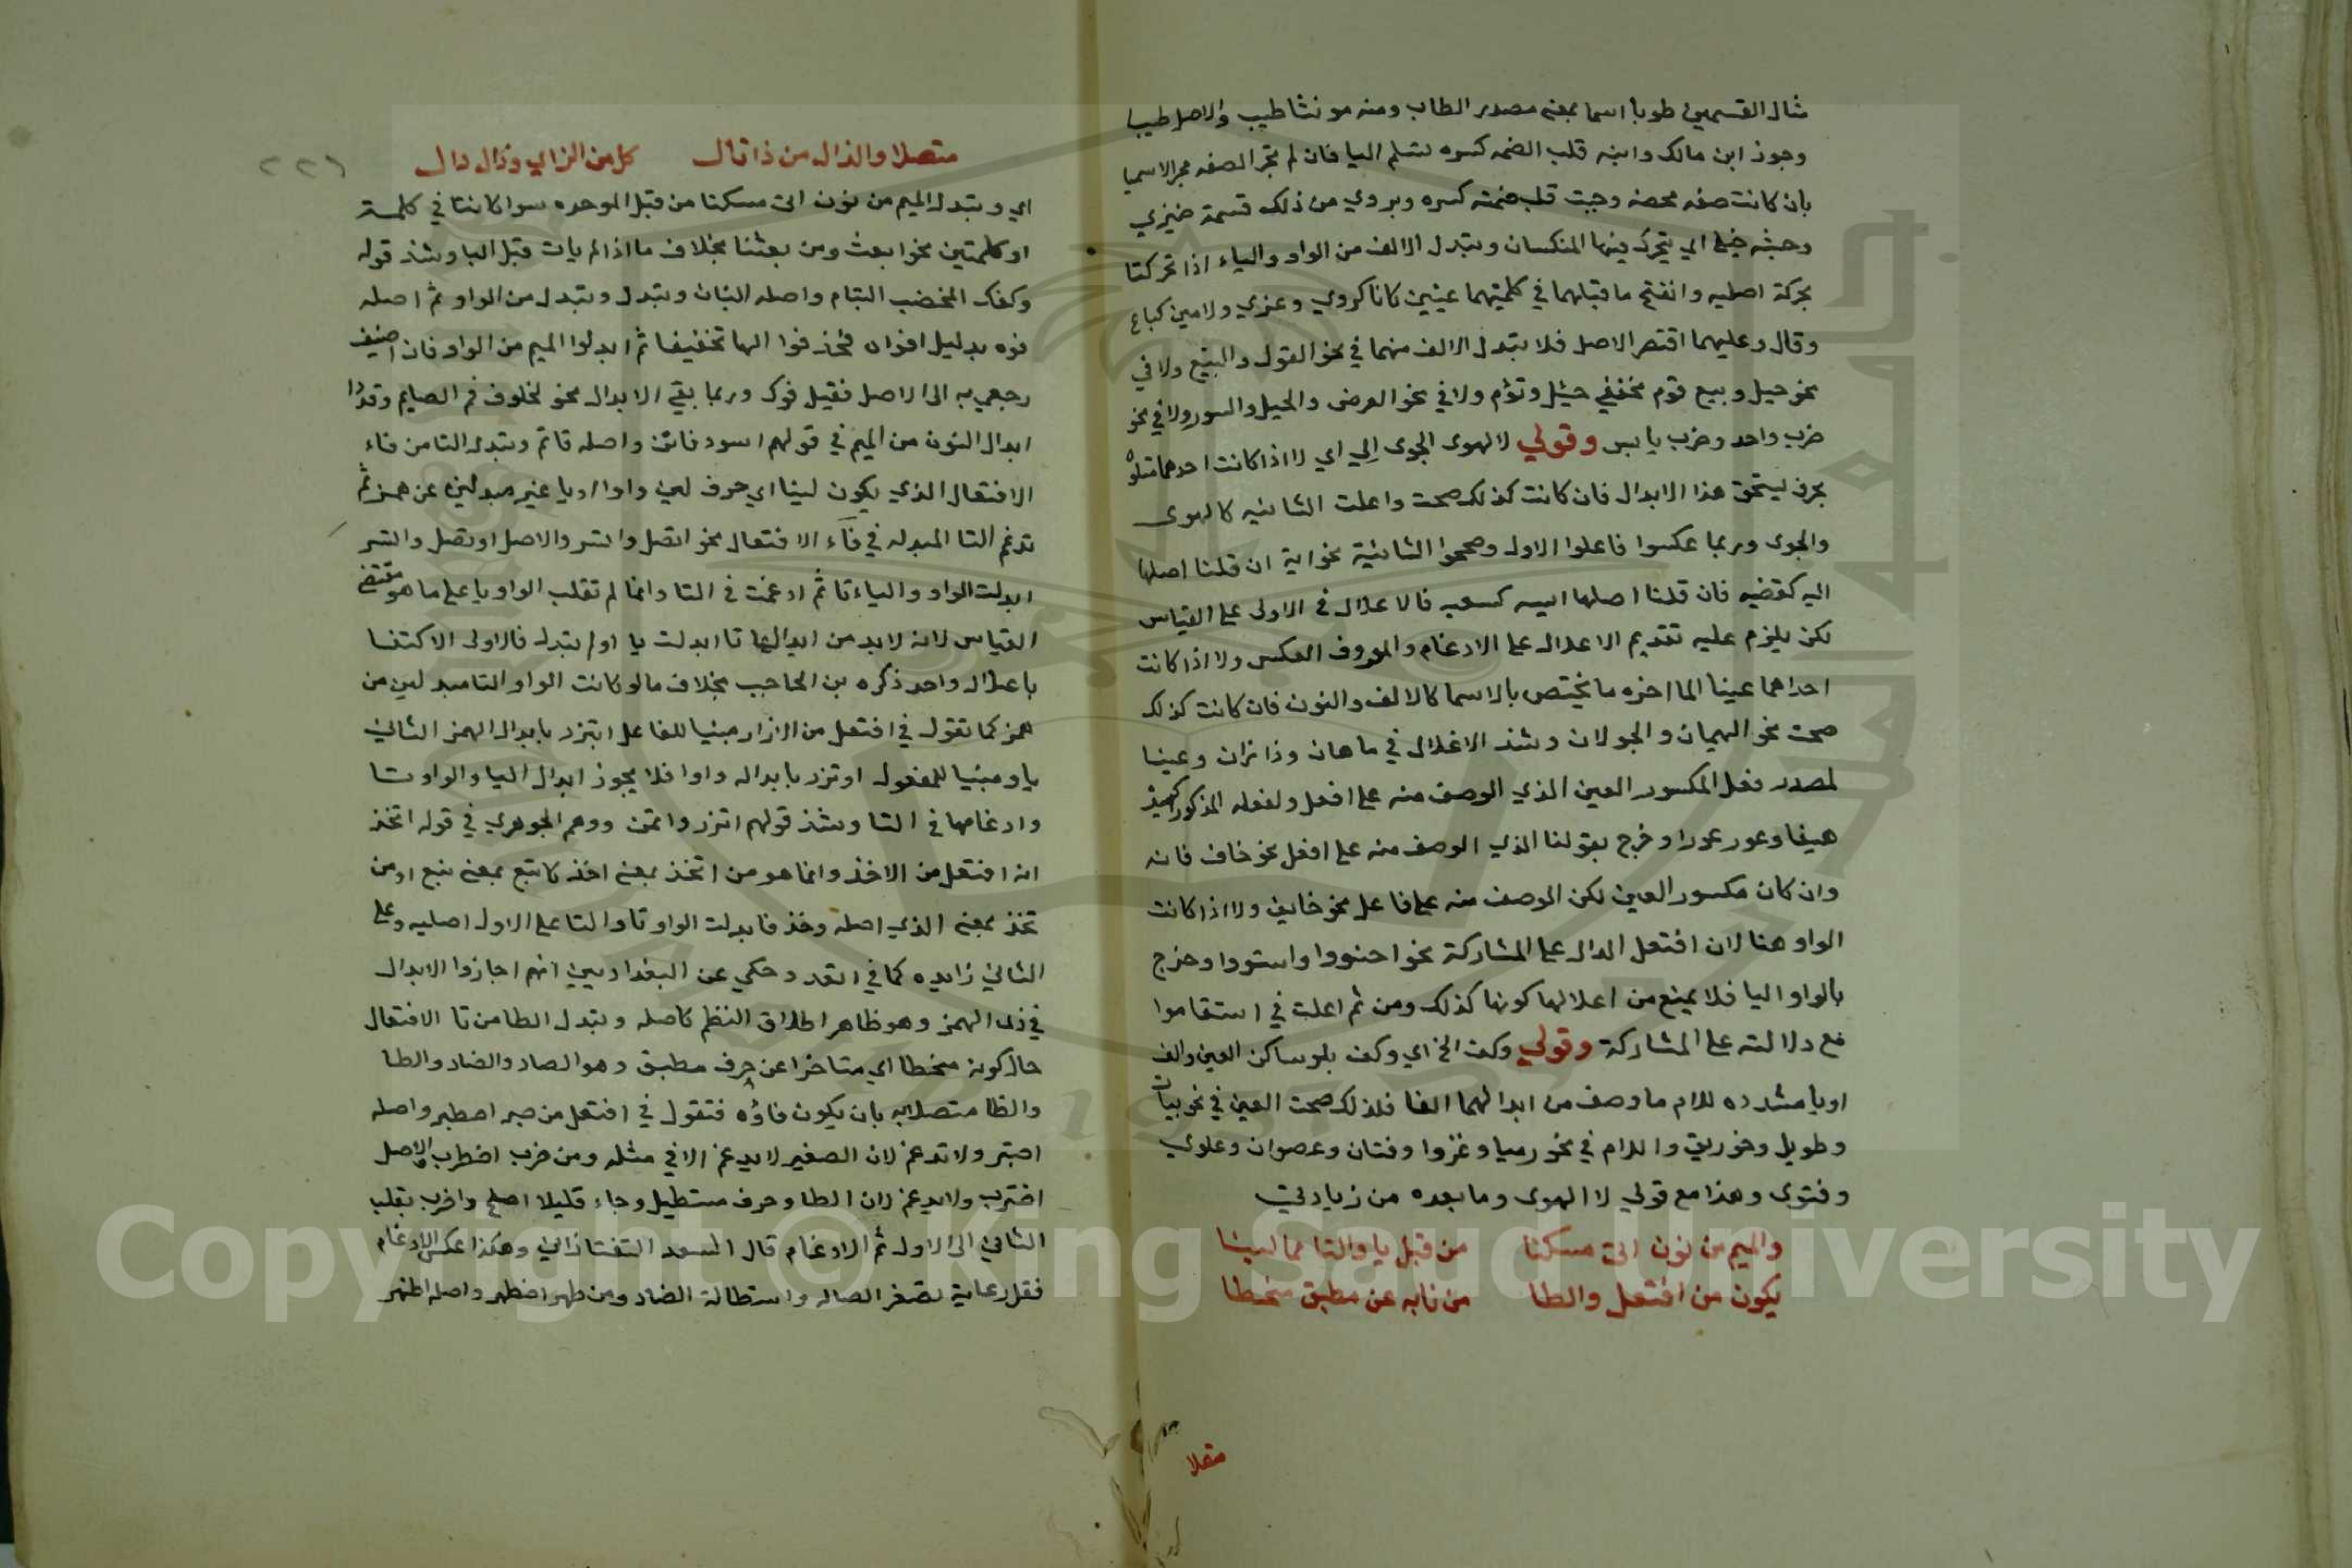 مثال القسمين طوبا اسما بمعنى مصدر الطاب ومنه مونثا طيب والاصل طيبا
وجوز ابن مالك وابنه قلب الضمه كسره لتسلم اليا فان لم تجر الصفه مجر الاسميا
بان كانت صفه محضه وجبت قلب ضمته كسره ويروي من ذلك قسمة ضيزي
وحشه اي يتحرك فيها المنكسان وتبدل الالف من الواو والياء اذا تحركتا
بحركة اصليه وانفتح ما قبلهما في كلمتيهما عينين كانا كروي وعزي ولامين كباع
وقال وعليهما اقتصر الاصل فلا تبدل الالف منهما في نحو القول والبيع ولا في
نحو جيل وبيع توم مخففي جيئل وتؤم ولا في نحو العرض والحيل والسور ولا في نحو
ضرب واحد وضرب يابس وقولي لا لهوى الجوى الي اي لا اذا كانت احدهما متلوة
بحرف يستحق هذا الابدال فان كانت كذلك صحت واعلت الثانيه كالهوى
والجوى وربما عكسوا فاعلوا الاول وصححوا الثانية نحو اية ان قلنا اصلها
اليه كقضيه فان قلنا اصلها اييه كسعيه فالاعلال في الاولى على القياس
لكن يلزم عليه تقديم الاعلال على الادغام والمعروف العكس ولا اذا كانت
احداهما عينا لما اخره ما يختص بالاسما كالالف والنون فان كانت كذلك
صحت نحو الهيمان والجولان وشذ الاعلال في ماهان وذا نران وعينا
لمصدر فعل المكسور العين الذي الوصف منه على افعل ولفعله المذكور كهيف
هيفا وعور عورا وخرج بقولنا الذي الوصف منه على افعل نحو خاف فانه
وان كان مكسور العين لكن الوصف منه على فاعل نحو خايف ولا اذا كانت
الواو هنا لان افتعل الدال على المشاركة نحو اجتوروا واستووا وخرج
بالواو اليا فلا يمنع من اعلالها كونها كذلك ومن ثم اعلت في استقاموا
مع دلالته على المشاركة وقولي وكف الخ اي وكف بلو ساكن العين والف
او يا مشدده للام ما وصف من ابدالهما الفا فلذلك صحت العين في نحو بيان
وطويل وخورنق واللام في نحو رميا وغزوا وفتان وعصوان وعلوي
وفتوى وهذا مع قولي لا الهوى وما بعده من زيادتي
والميم من نون اتى مسكنا من قبل با والتا مما لينا
يكون من افتعل والطا من تا به عن مطبق منحطا
متصلا
٢٢٦
متصلا والذال من ذا تال كل من الزاي وذال دال
اي وتبدل الميم من نون اتى مسكنا من قبل الموحده سوا كانتا في كلمة
او كلمتين نحو ابعث ومن بعثنا بخلاف ما اذا لم يات قبل البا وشذ قوله
وكفك المخضب البتام واصله البنان وتبدل وتبدل من الواو ثم اصله
فوه بدليل افواه فحذفوا الها تخفيفا ثم ابدلوا الميم من الواو فان اضيف
رجعي به الى الاصل فقيل فوك وربما بقي الابدال نحو لخلوف فم الصايم وقد
ابدال النون من الميم في قولهم اسود فاتن واصله قاتم وتبدل التا من فاء
الافتعال الذي يكون لينا اي حرف لين واوا او يا غير مبدلين عن همز ثم
تدغم التا المبدله في فاء الافتعال نحو اتصل واتسر والاصل اوتصل وايتسر
ابدلت الواو والياء تا ثم ادغمت في التا وانما لم تقلب الواو يا على ما هو مقتضى
القياس لانه لابد من ابدالها تا ابدلت يا او لم تبدل فالاولى الاكتفا
باعلال واحد ذكره بن الحاجب بخلاف ما لو كانت الواو التا مبدلين من
همز كما تقول في افتعل من الازار مبنيا للفاعل ايتزر بابدال الهمز الثاني
يا ومبنيا للمفعول اوتزر بابداله واوا فلا يجوز ابدال اليا والواو تا
وادغامها في التا وشذ قولهم اتزر واتمن ووهم الجوهري في قوله اتخذ
انه افتعل من الاخذ وانما هو من اتخذ بمعنى اخذ كاتبع بمعنى تبع او من
تخذ بمعنى الذي اصله وخذ فابدلت الواو تا والتا على الاول اصليه وعلى
الثاني زايده كما في اتعد وحكي عن البغداديين انهم اجازوا الابدال
في ذى الهمز وهو ظاهر اطلاق النظم كاصله وتبدل الطا من تا الافتعال
حال كونه منحطا اي متاخرا عن حرف مطبق وهو الصاد والضاد والطا
والظا متصلا به بان يكون فاؤه فتقول في افتعل من صبر اصطبر واصله
اصتبر ولا تدغم لان الصفير لا يدغم الا في مثله ومن ضرب اضطرب والاصل
اضترب ولا يدغم لان الطا وحرف مستطيل وجاء قليلا اصلح واضرب بقلب
الثاني الى الاول ثم الادغام قال السعد التفتازاني وهكذا عكس الادغام
فقل رعاية لصفر الصاد واستطالة الضاد ومن طهر اضطهر واصله اطتهر
Copyright © King Saud University
1957